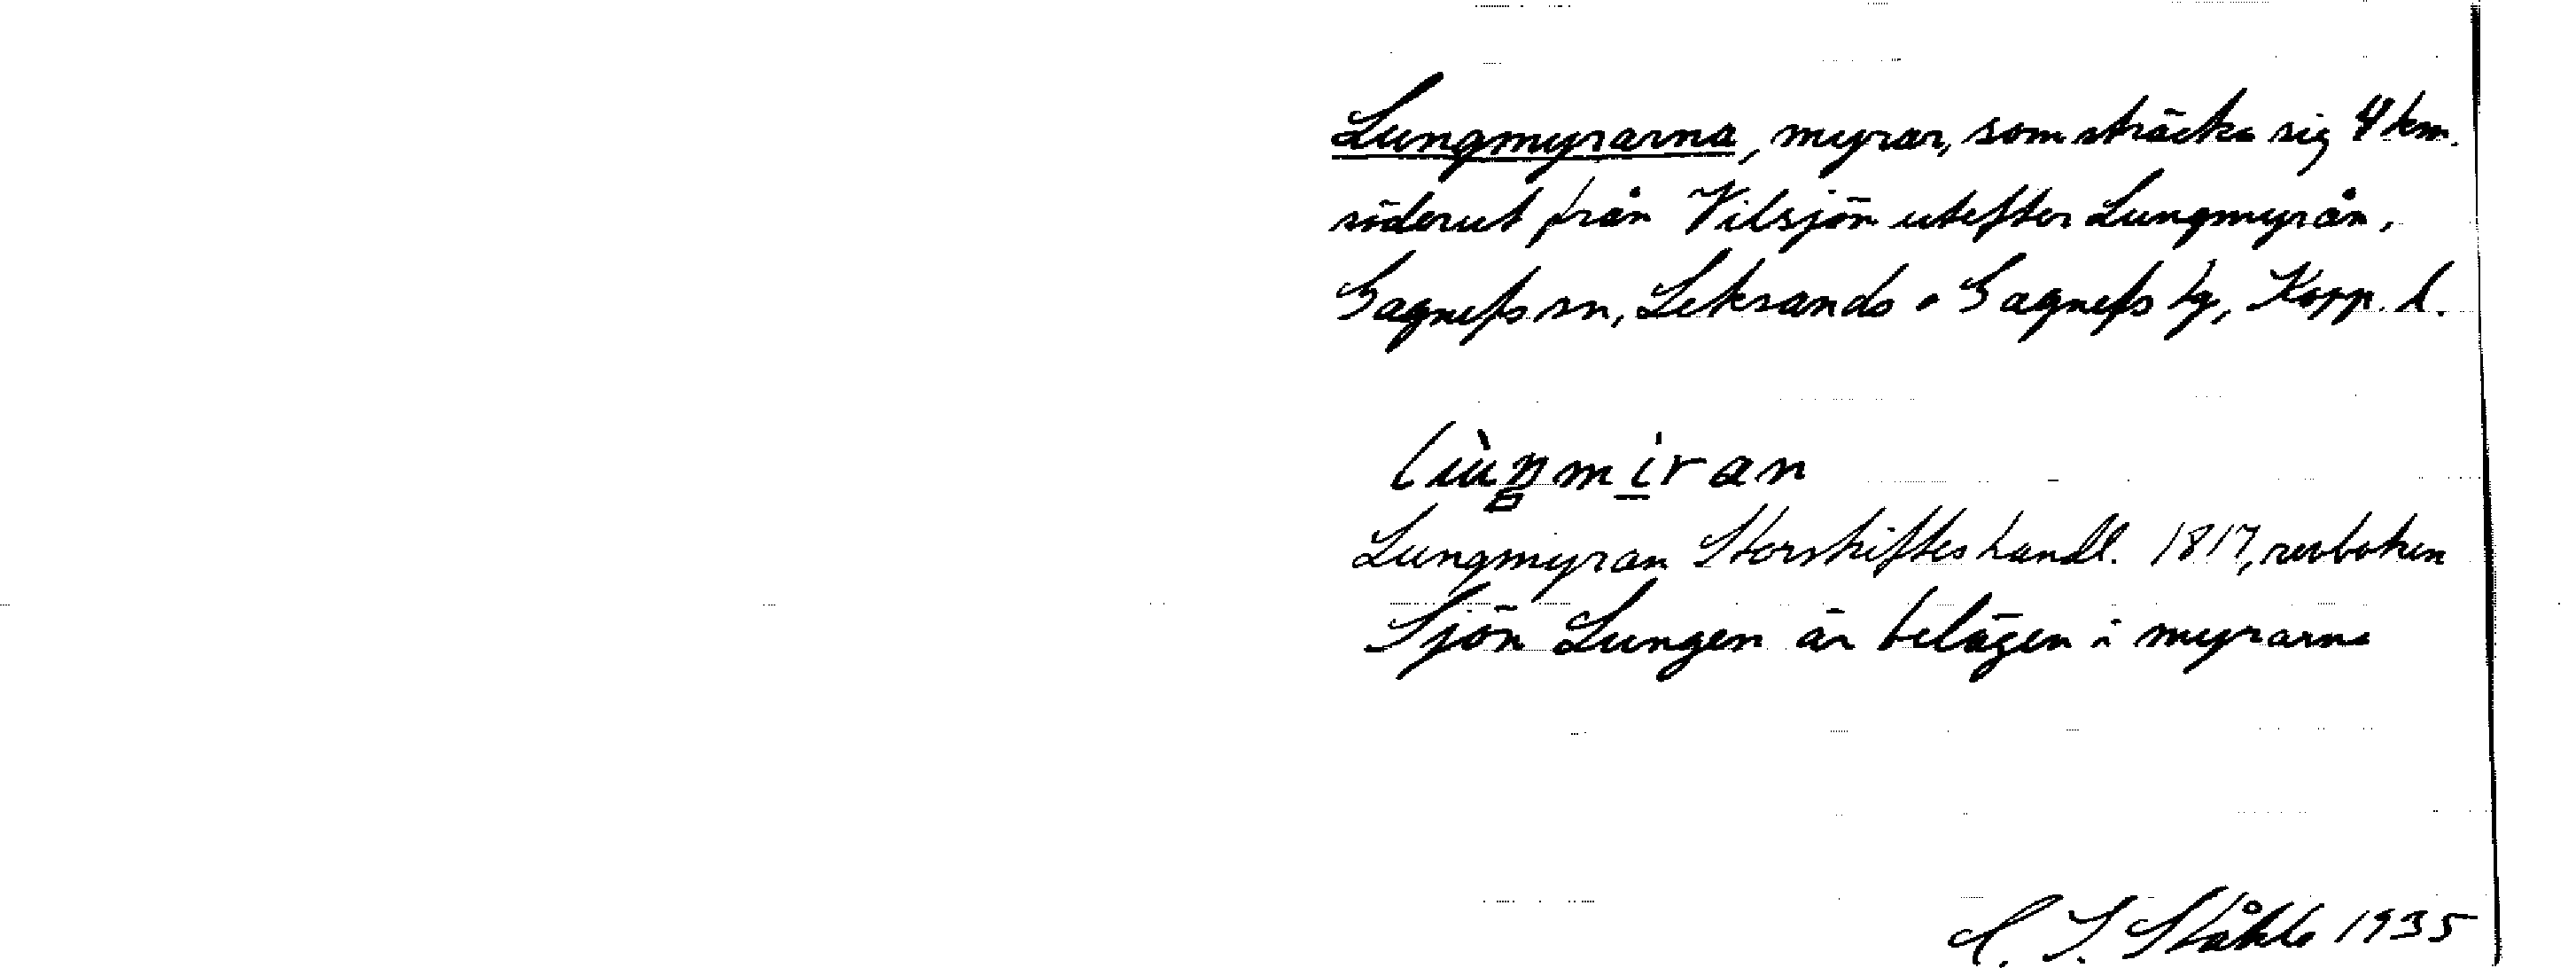 Lungmyrarna, myrar, som sträcka sig 4 km.
söderut från Vilsjön utefter Lungmyrån,
Gagnefs sn, Leksands o Gagnefs tg, Kopp. l.
Lungmyran Storskifteshandl. 1817, revboken
Sjön Lungen är belägen i myrarna
C. I. Ståhle 1935